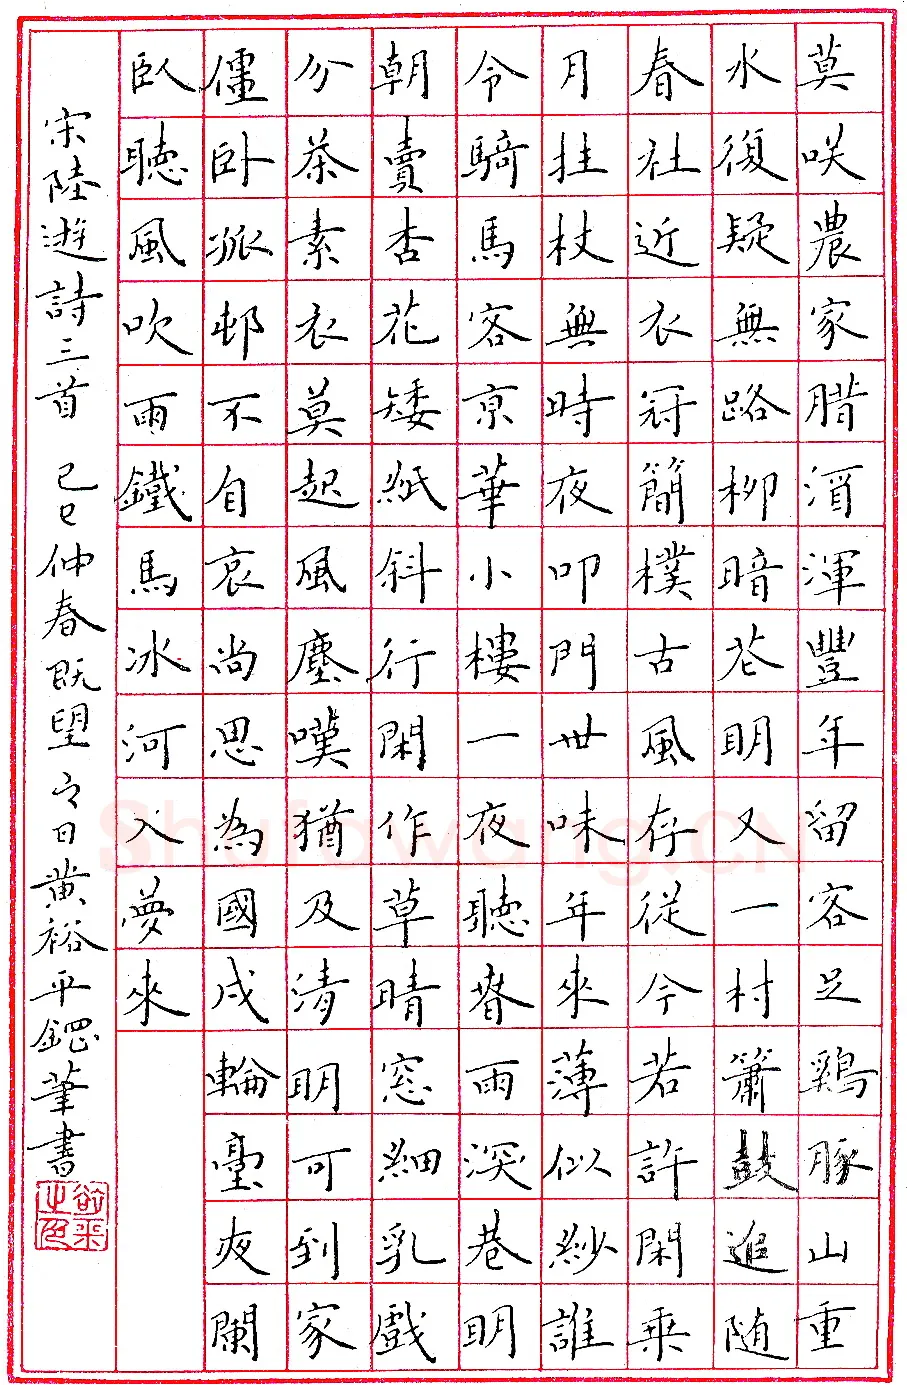 莫咲農家腊酒渾豐年留客足鷄豚山重
水復疑無路柳暗花明又一村簫鼓追随
春社近衣冠簡樸古風存從今若許閑乗
月拄杖無時夜叩門世味年來薄似紗誰
令騎馬客京華小樓一夜聽春雨深巷明
朝賣杏花矮紙斜行閑作草晴窓細乳戲
分茶素衣莫起風塵嘆猶及清明可到家
僵卧孤邨不自哀尚思為國戍輪臺夜闌
臥聽風吹雨鐵馬冰河入夢來
宋陸遊詩三首 己巳仲春既望之日黄裕平鋼筆書
Shufawang.CN